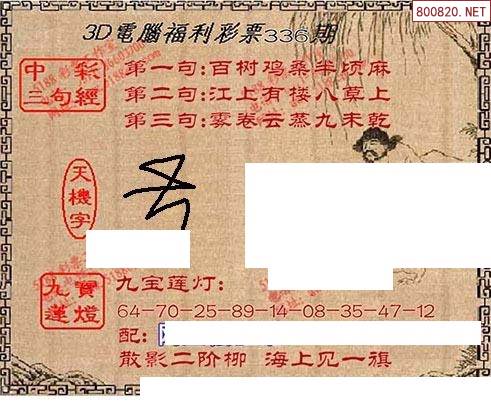 800820.NET
3D電腦福利彩票336期
中彩
三句經
第一句:百树鸡桑半顷麻
第二句:江上有楼八莫上
第三句:雾卷云蒸九未乾
天機字
九寶
蓮燈
九宝莲灯:
64-70-25-89-14-08-35-47-12
配:
散影二阶柳 海上见一旗